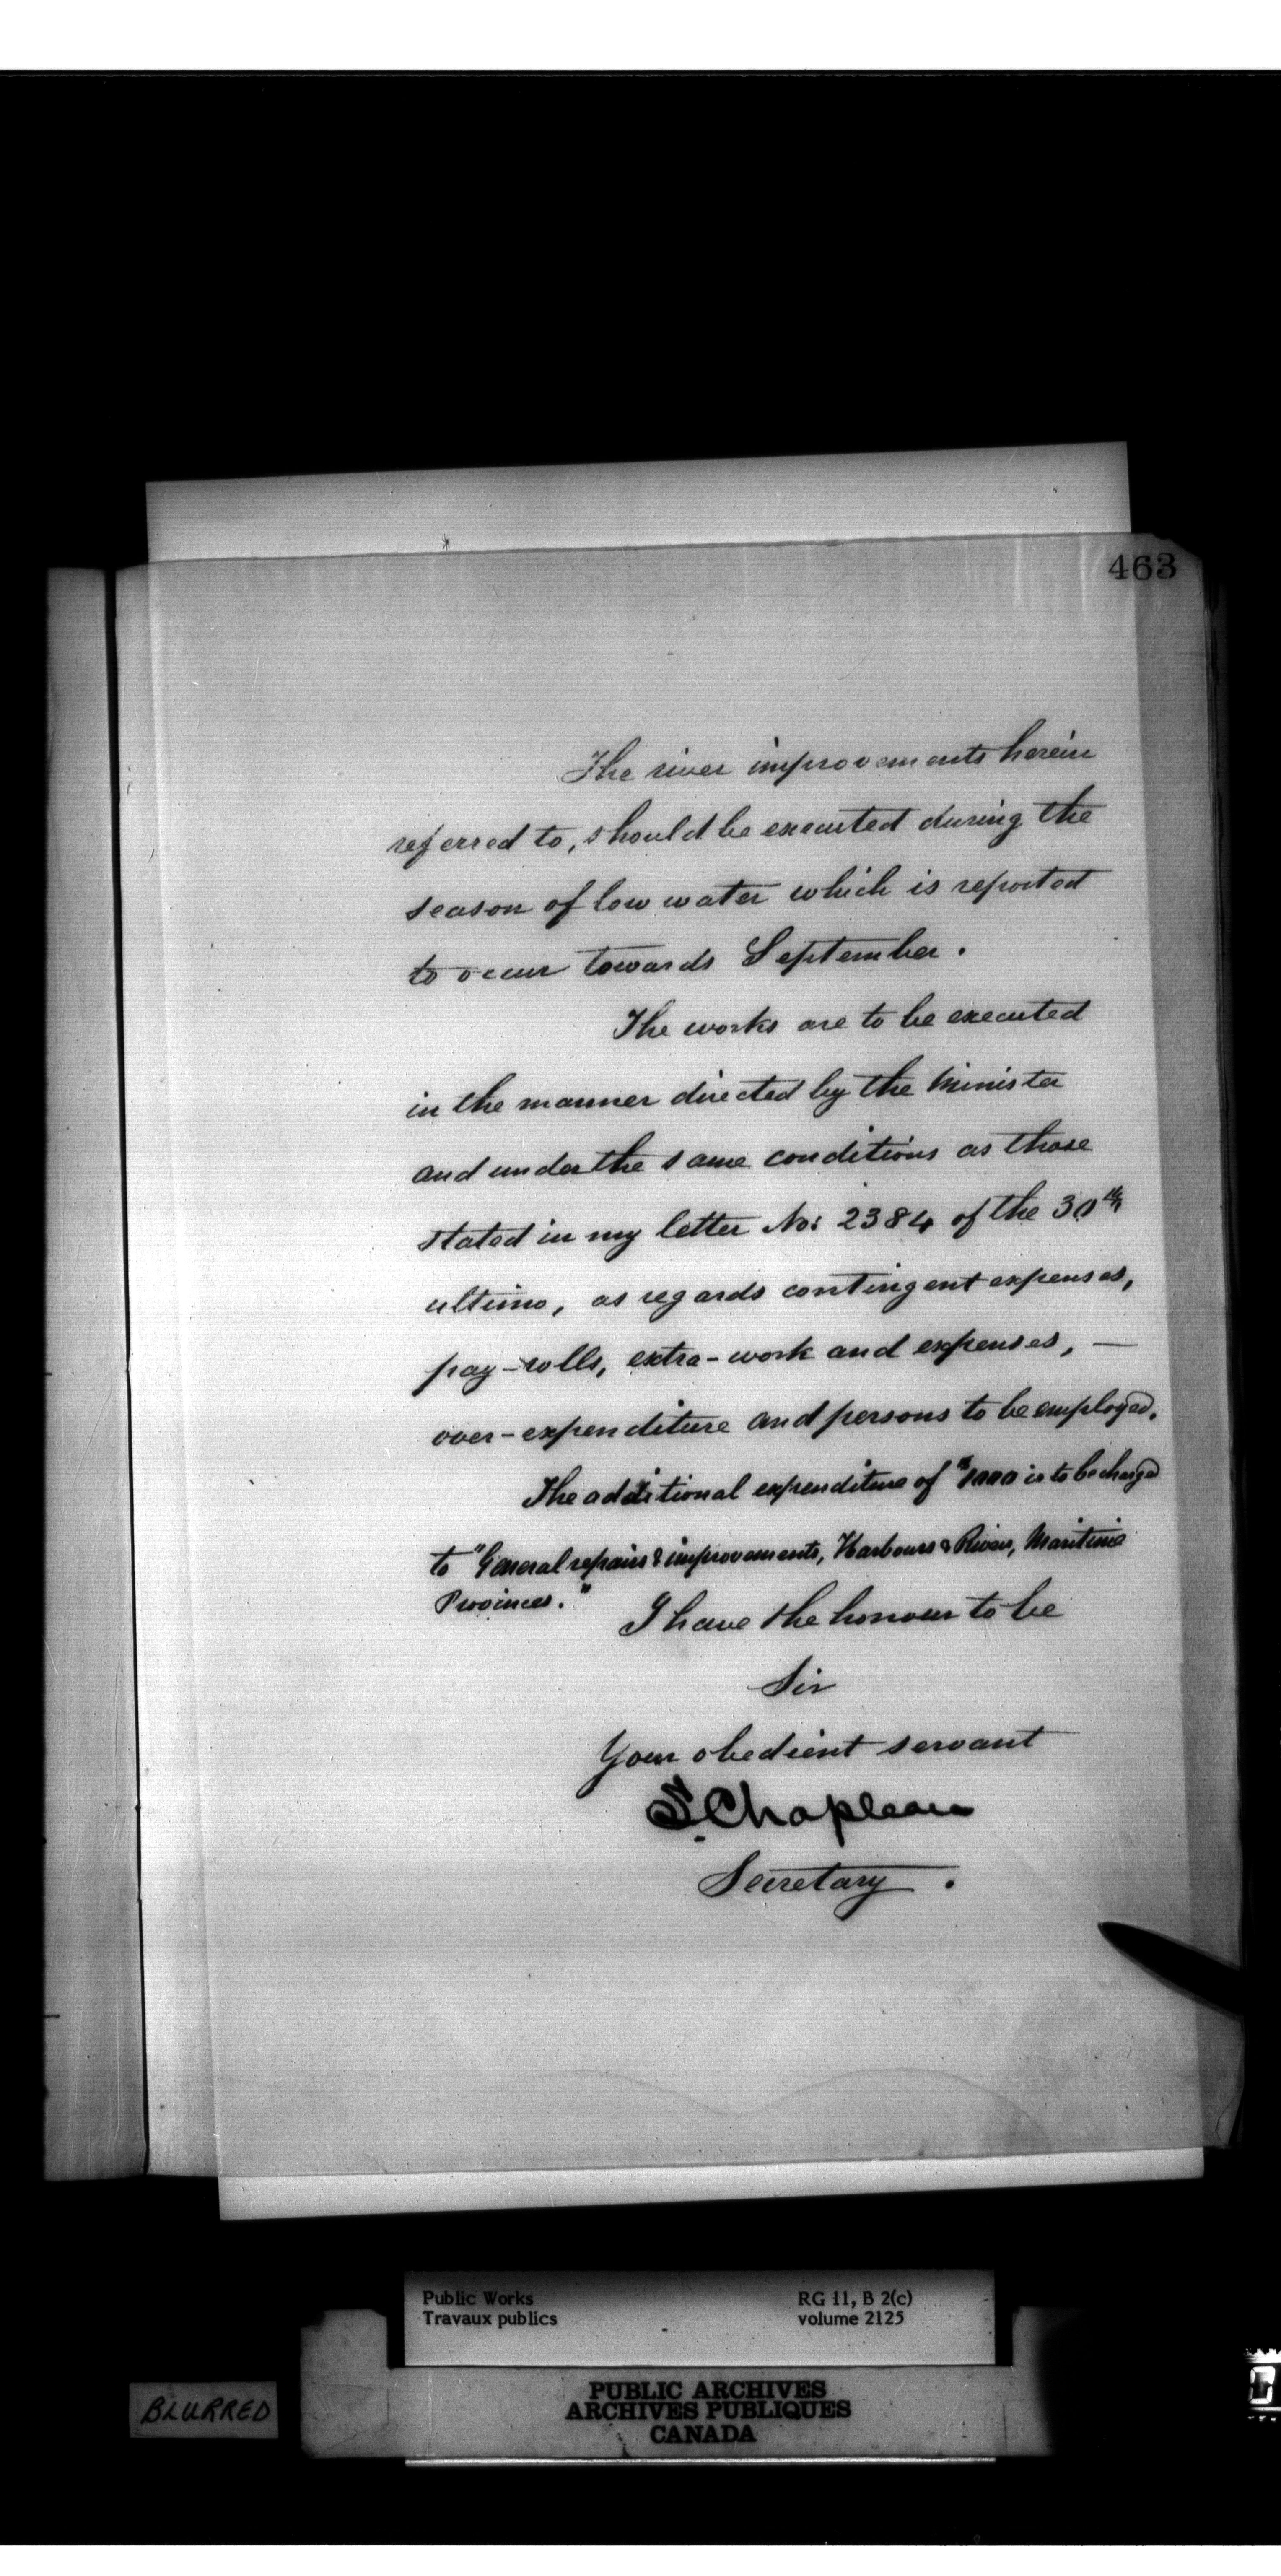 463
The river improvements herein
referred to, should be executed during the
season of low water which is reported
to occur towards September.
The works are to be executed
in the manner directed by the Minister
and under the same conditions as those
stated in my letter No: 2384 of the 30th
ultimo, as regards contingent expenses,
pay-rolls, extra-work and expenses, —
over-expenditure and persons to be employed.
The additional expenditure of is to be charged
to "General repairs & improvements, Harbours & Rivers, Maritime
Provinces."
I have the honour to be
Sir
Your obedient servant
S. Chapleau
Secretary.
Public Works
Travaux publics
RG 11, B 2(c)
volume 2125
BLURRED
PUBLIC ARCHIVES
ARCHIVES PUBLIQUES
CANADA